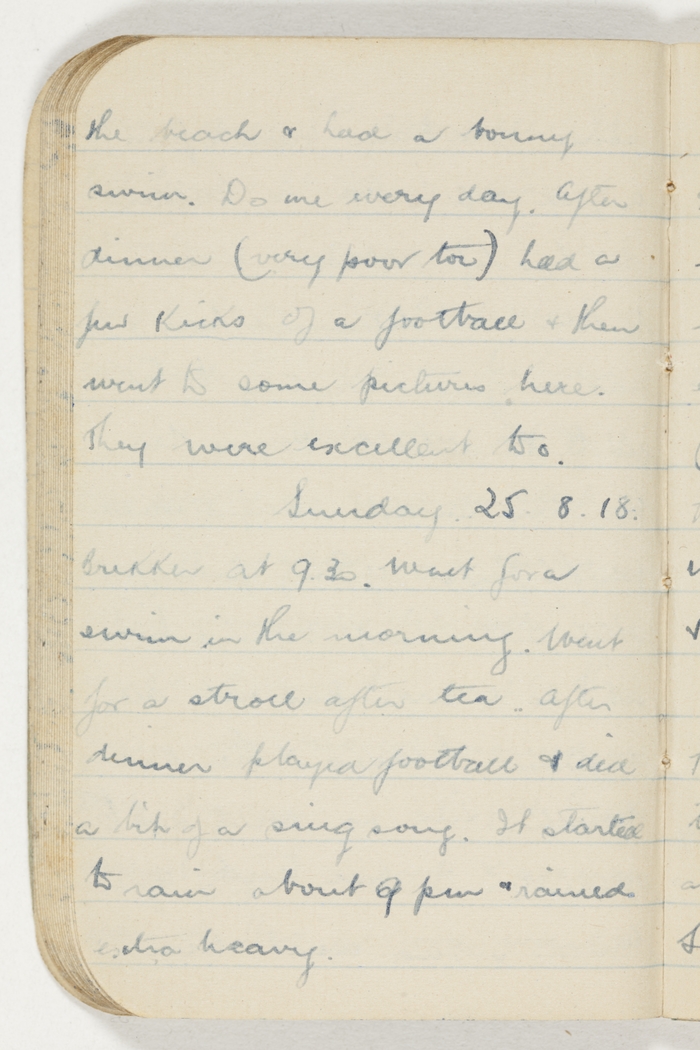 the beach & had a bonny
swim. Do me every day. After
dinner (very poor too) had a
few Kicks of a football & then
went to some pictures here.
They were excellent too.
Sunday. 25. 8. 18.
Brekker at 9.30. Went for a
swim in the morning. Went
for a stroll after tea. After
dinner played football & did
a bit of a sing song. It started
to rain about 9 pm & rained
extra heavy.